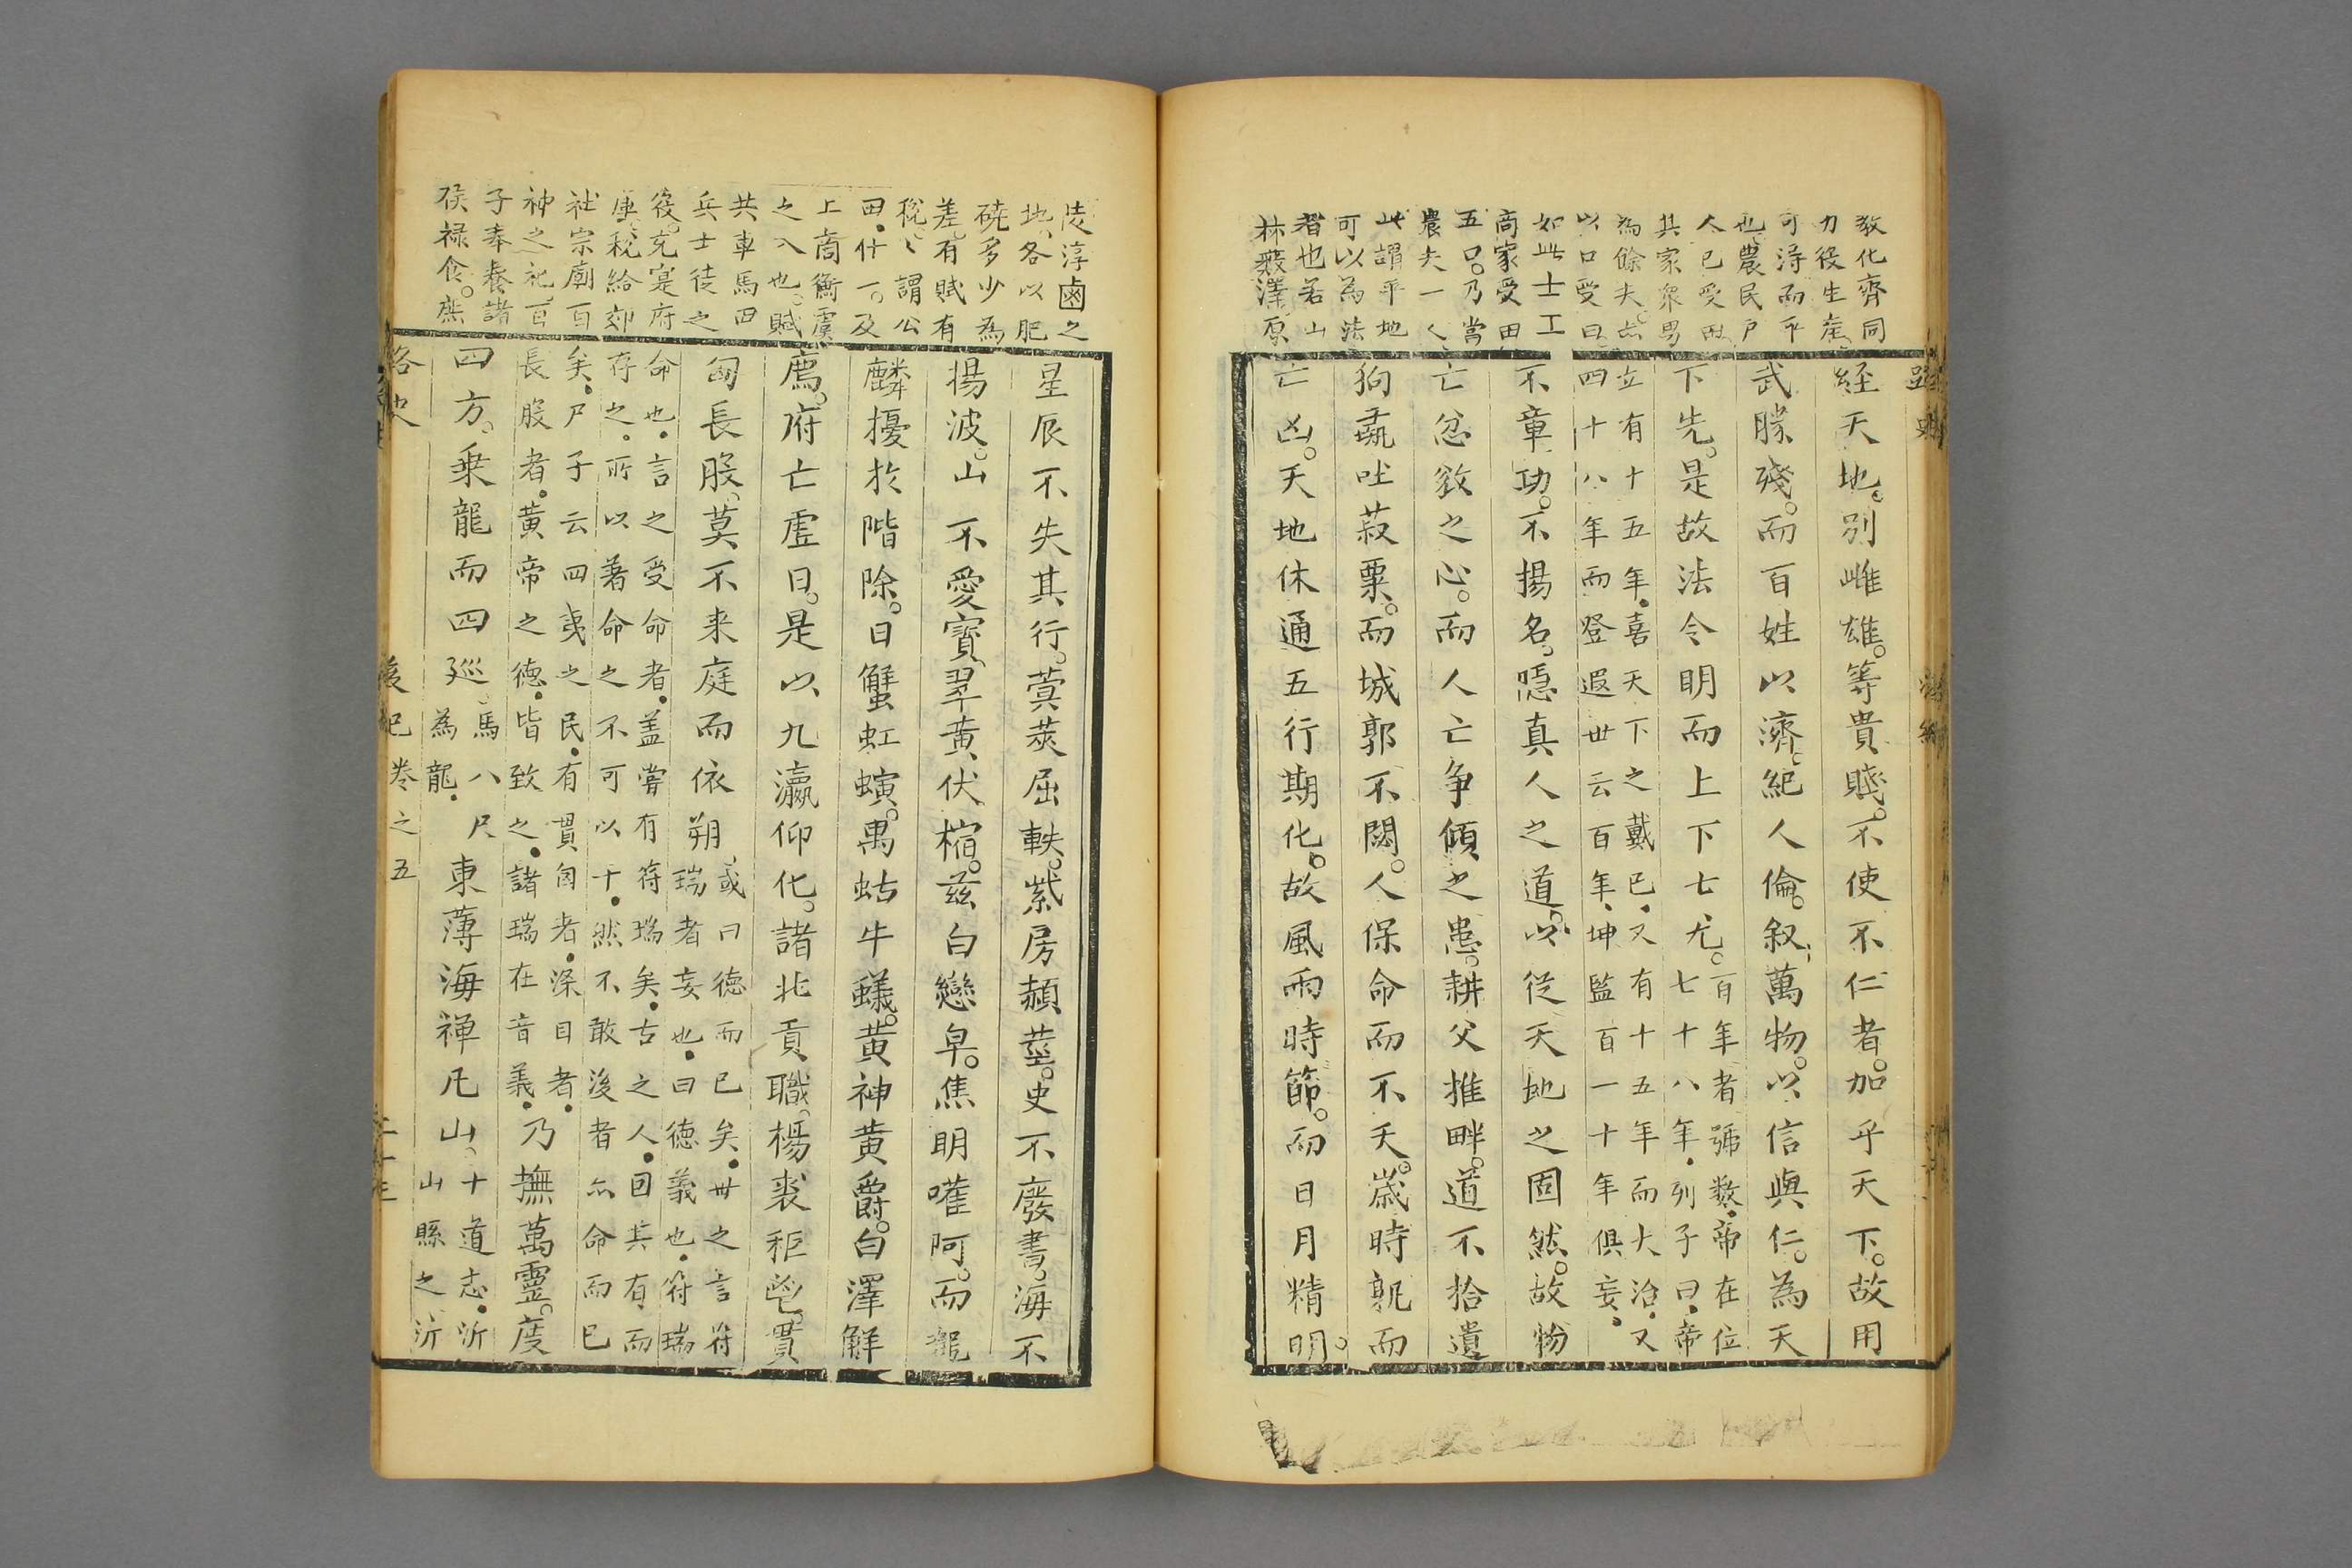 教化齊同
力役生產
可得而平
也農民戶
人已受田
其家衆男
為餘夫亦
以口受田
如此士工
商家受田
五口乃當
農夫一人
此謂平地
可以為法
者也若山
林藪澤原
經天地。別雌雄。等貴賤。不使不仁者。加乎天下。故用
武勝殘。而百姓以濟。紀人倫。叙萬物。以信與仁。為天
下先。是故法令明而上下亡尤。
百年者號數。帝在位
七十八年。列子曰。帝
立有十五年。喜天下之戴已。又有十五年而大治。又
四十八年而登遐世云百年。坤監百一十年俱妄。
不章功。不揚名。隱真人之道。以從天地之固然。故物
亡忿敓之心。而人亡争傾之患。耕父推畔。道不拾遺
狗彘吐菽粟。而城郭不閟。人保命而不夭。歲時孰而
亡凶。天地休通五行期化。故風雨時節。而日月精明。
陵淳鹵之
地各以肥
磽多少為
差有賦有
稅稅謂公
田什一及
上商衡虞
之入也賦
共車馬甲
兵士徒之
役充寔府
庫稅給郊
社宗廟百
神之祀百
子奉養諸
侯禄食。庶
星辰不失其行。蓂莢屈軼。紫房頳莖。史不廢書。海不
揚波。山不愛寶。翠黃伏楅。茲白戀皁。焦明嚾阿。而龍
麟擾於階除。日蟹虹螾。禺蛄牛蟻。黃神黃爵。白澤觧
廌。府亡虛日。是以九瀛仰化。諸北貢職。楊裘秬鬯。貫
匈長股。莫不来庭而依朔
或曰德而已矣。丗之言符
瑞者妄也。曰德義也。符瑞
命也。言之受命者。盖嘗有符瑞矣。古之人。回其有而
存之。所以著命之不可以十。然不敢後者亦命而已
矣。尸子云四夷之民。有貫匈者。深目者。
長股者。黃帝之德。皆致之。諸瑞在音義。
乃撫萬靈。度
四方。乗龍而四廵。
馬八尺
為龍。
東薄海禅凡山
十道志。沂
山縣之沂
後紀卷之五